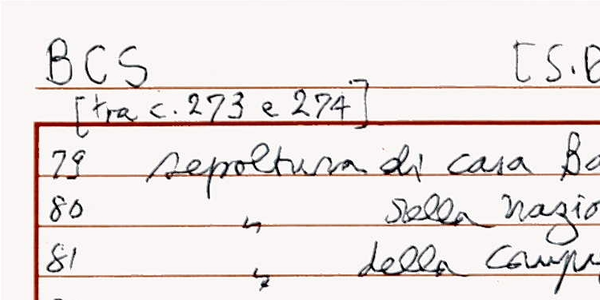 BCS [S.B
[tra c. 273 e 274]
79 sepoltura di casa Ba
80 " della nazio
81 " della comp